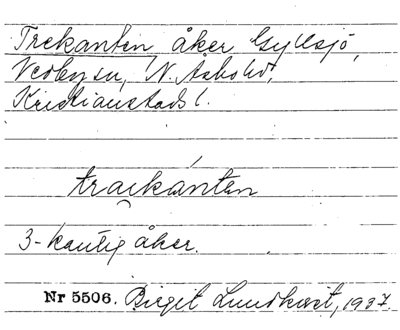 Trekanten, åker Gyllsjö,
Vedby sn, N. Åsbo hd,
Kristianstads l.
traikánten
3-kantig åker.
Nr 5506. Birgit Lundkvist, 1937.